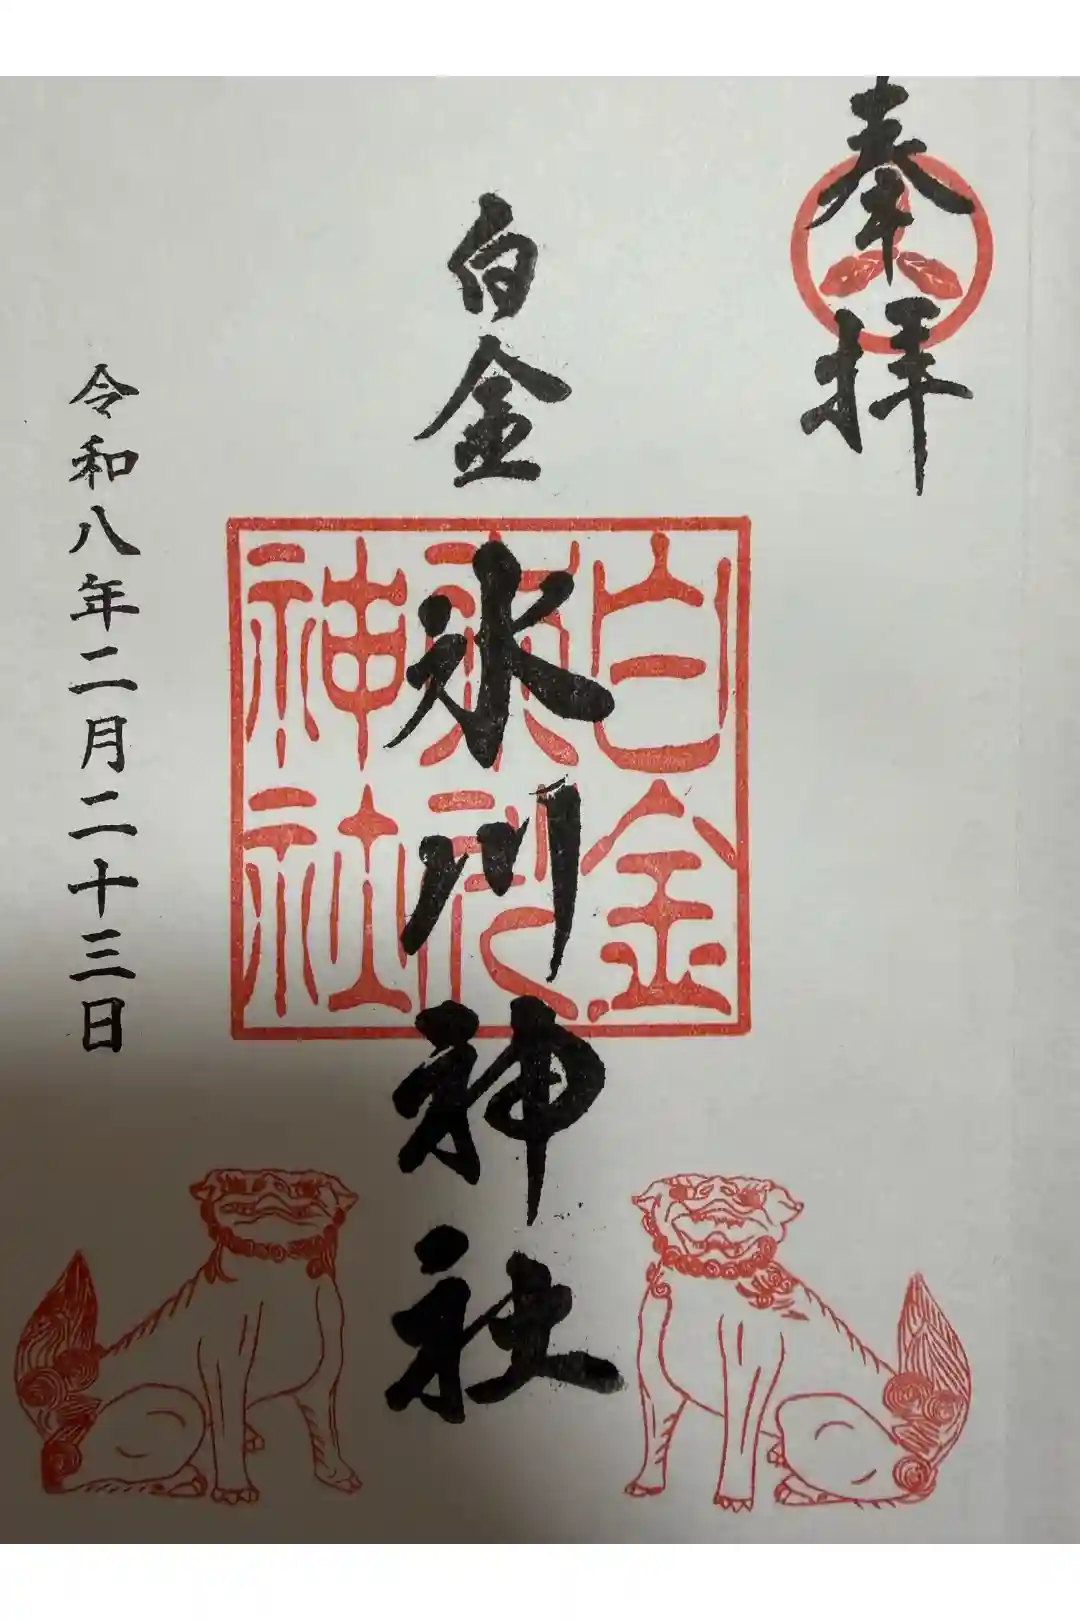 奉拝
白金氷川神社
白金
氷川
神社
令和八年二月二十三日